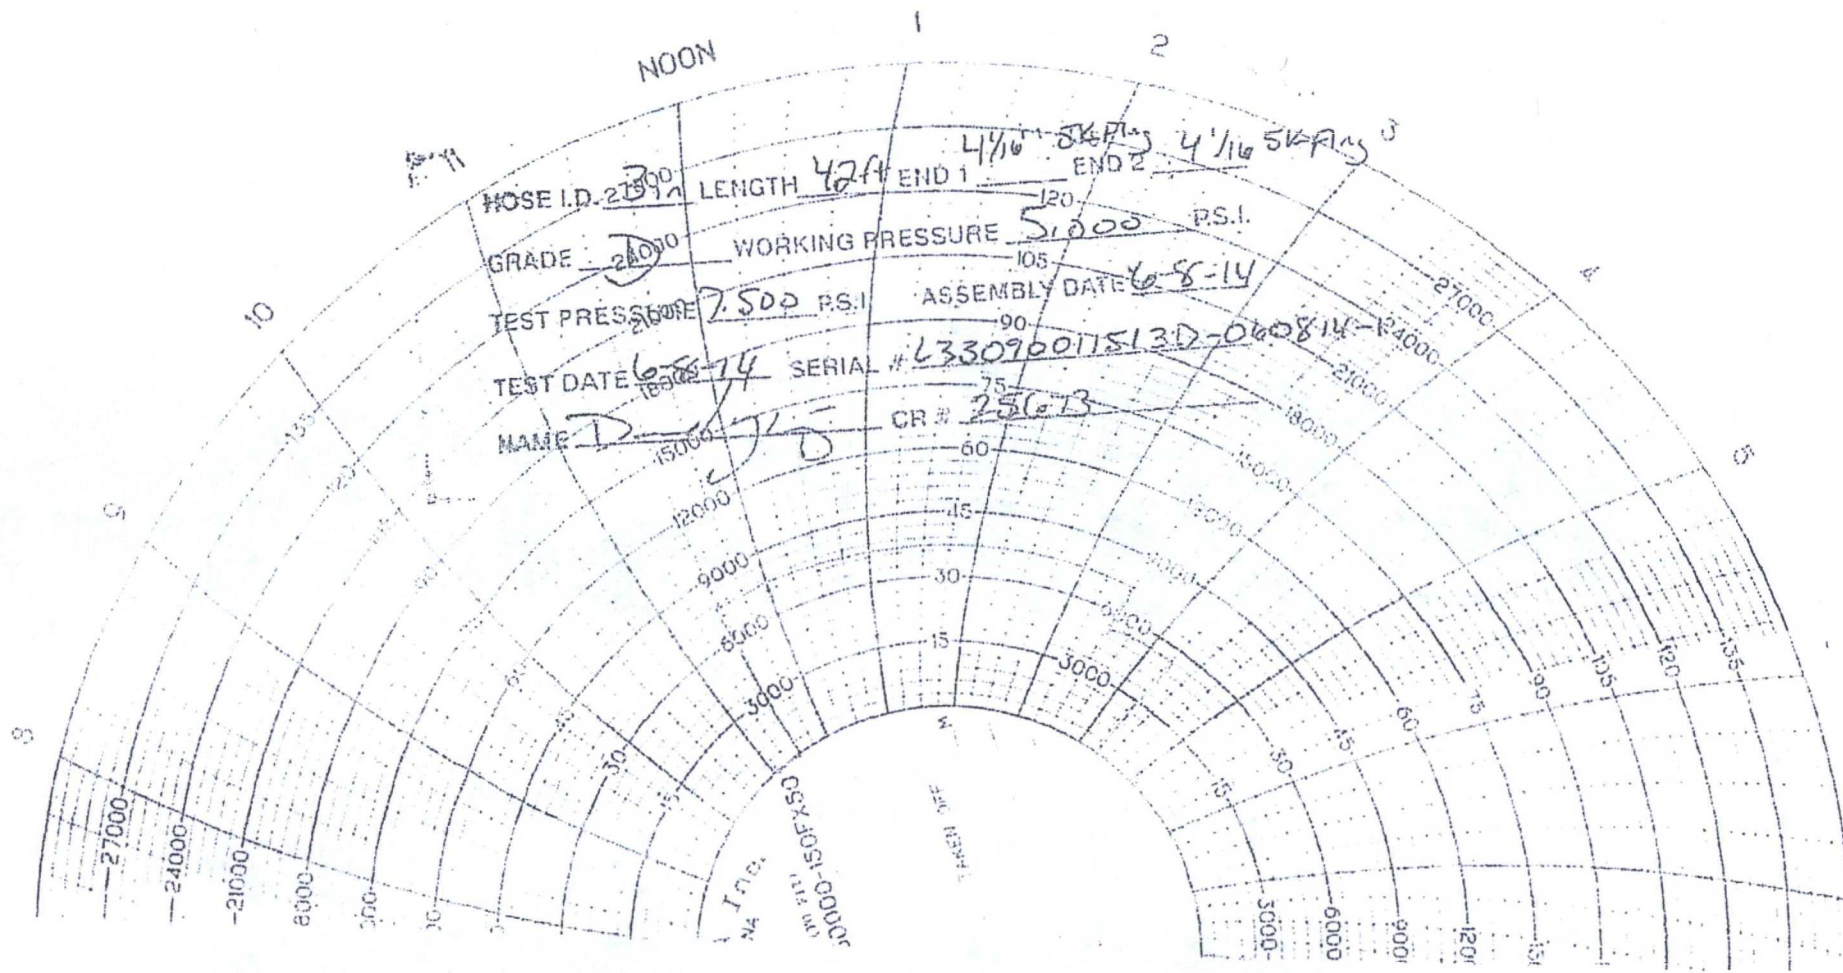 NOON
1
2
3
4
5
10
9
8
HOSE I.D. 3in LENGTH 42ft END 1 4 1/16" 5K Flng END 2 4 1/16 5K Flng
GRADE D WORKING PRESSURE 5,000 P.S.I.
TEST PRESSURE 7.500 P.S.I. ASSEMBLY DATE 6-8-14
TEST DATE 6-8-14 SERIAL # L33090011513D-060814-1
NAME CR # 25613
15000
12000
9000
6000
3000
120
105
90
75
60
45
30
15
27000
24000
21000
18000
15000
12000
9000
6000
3000
135
120
105
90
75
60
45
30
15
60
45
30
15
27000
24000
21000
8000
3000
6000
900
120
TAKEN OFF
Inc.